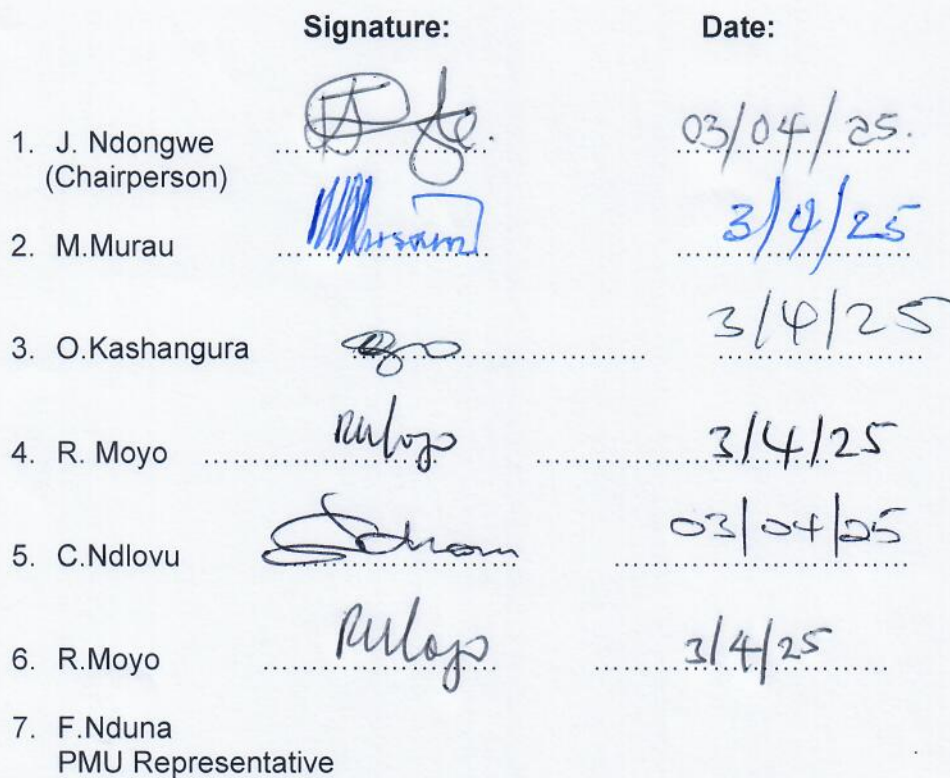 Signature: Date:
1. J. Ndongwe .................... 03/04/25.
(Chairperson)
2. M.Murau .................... 3/4/25
3. O.Kashangura .................... 3/4/25
4. R. Moyo .................... RMoyo .................... 3/4/25
5. C.Ndlovu .................... 03/04/25
6. R.Moyo .................... RMoyo .................... 3/4/25
7. F.Nduna
PMU Representative